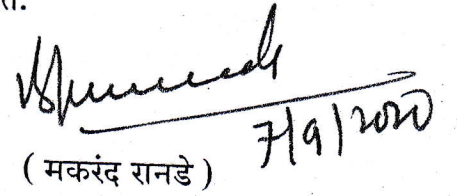 त.
7/9/2020
( मकरंद रानडे )